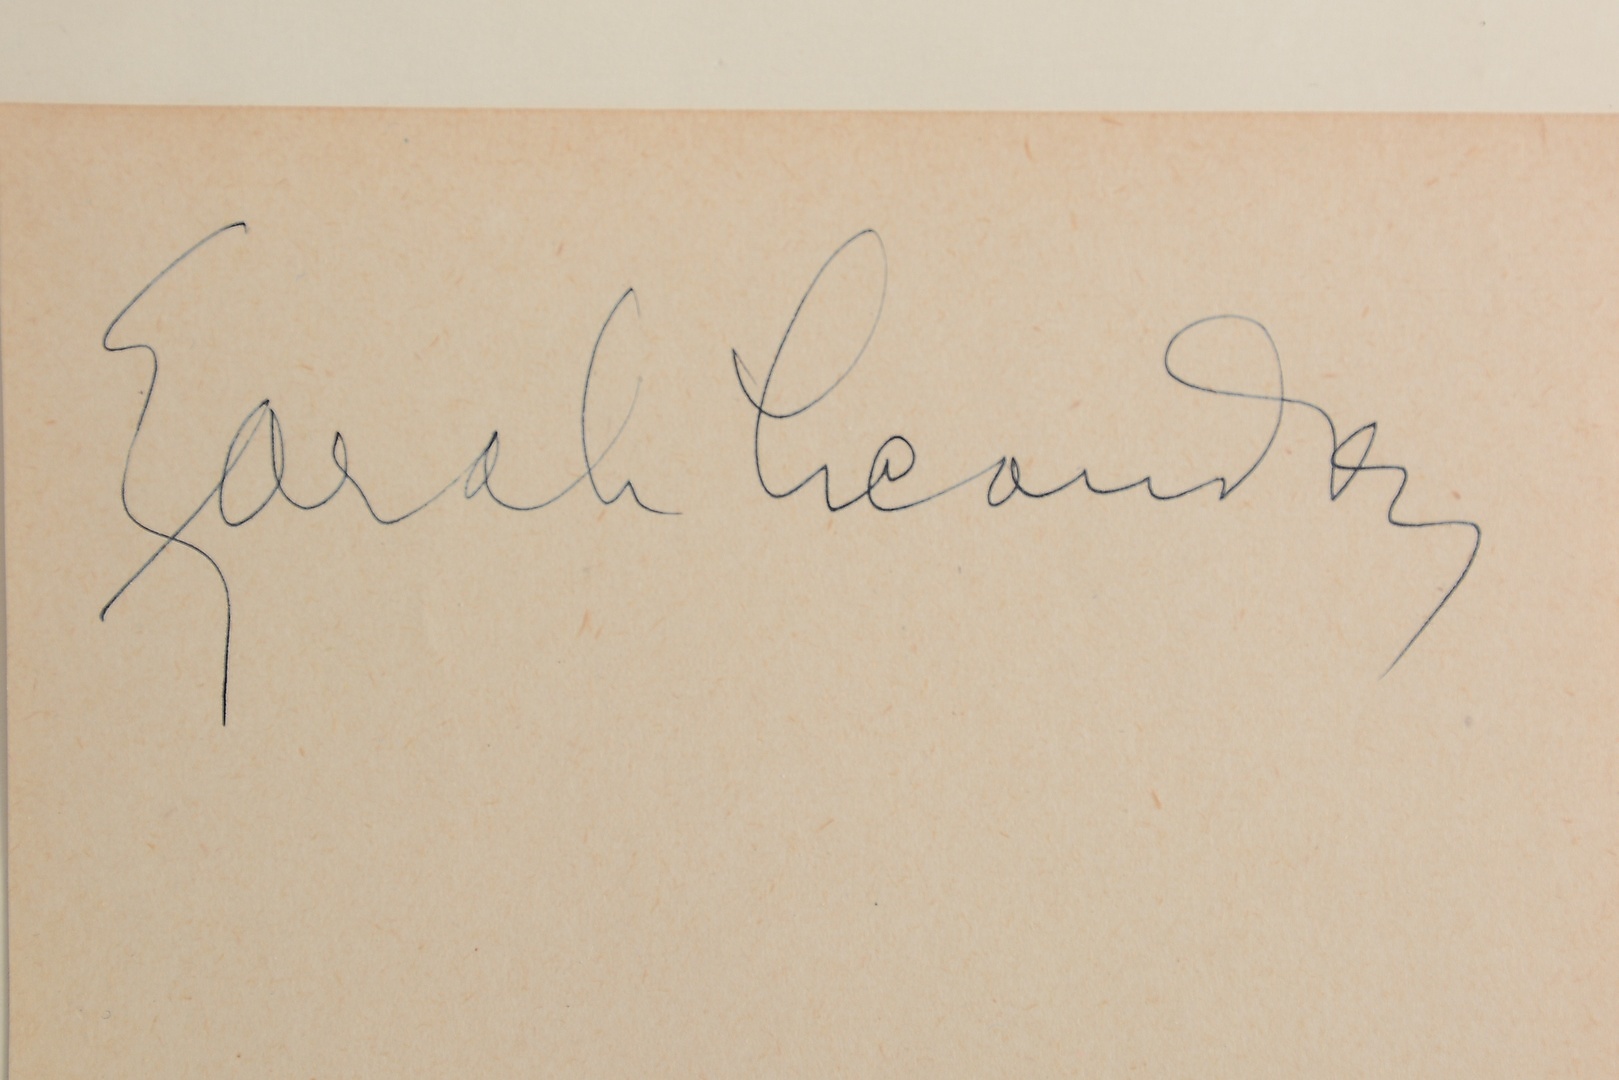 Zarah Leander